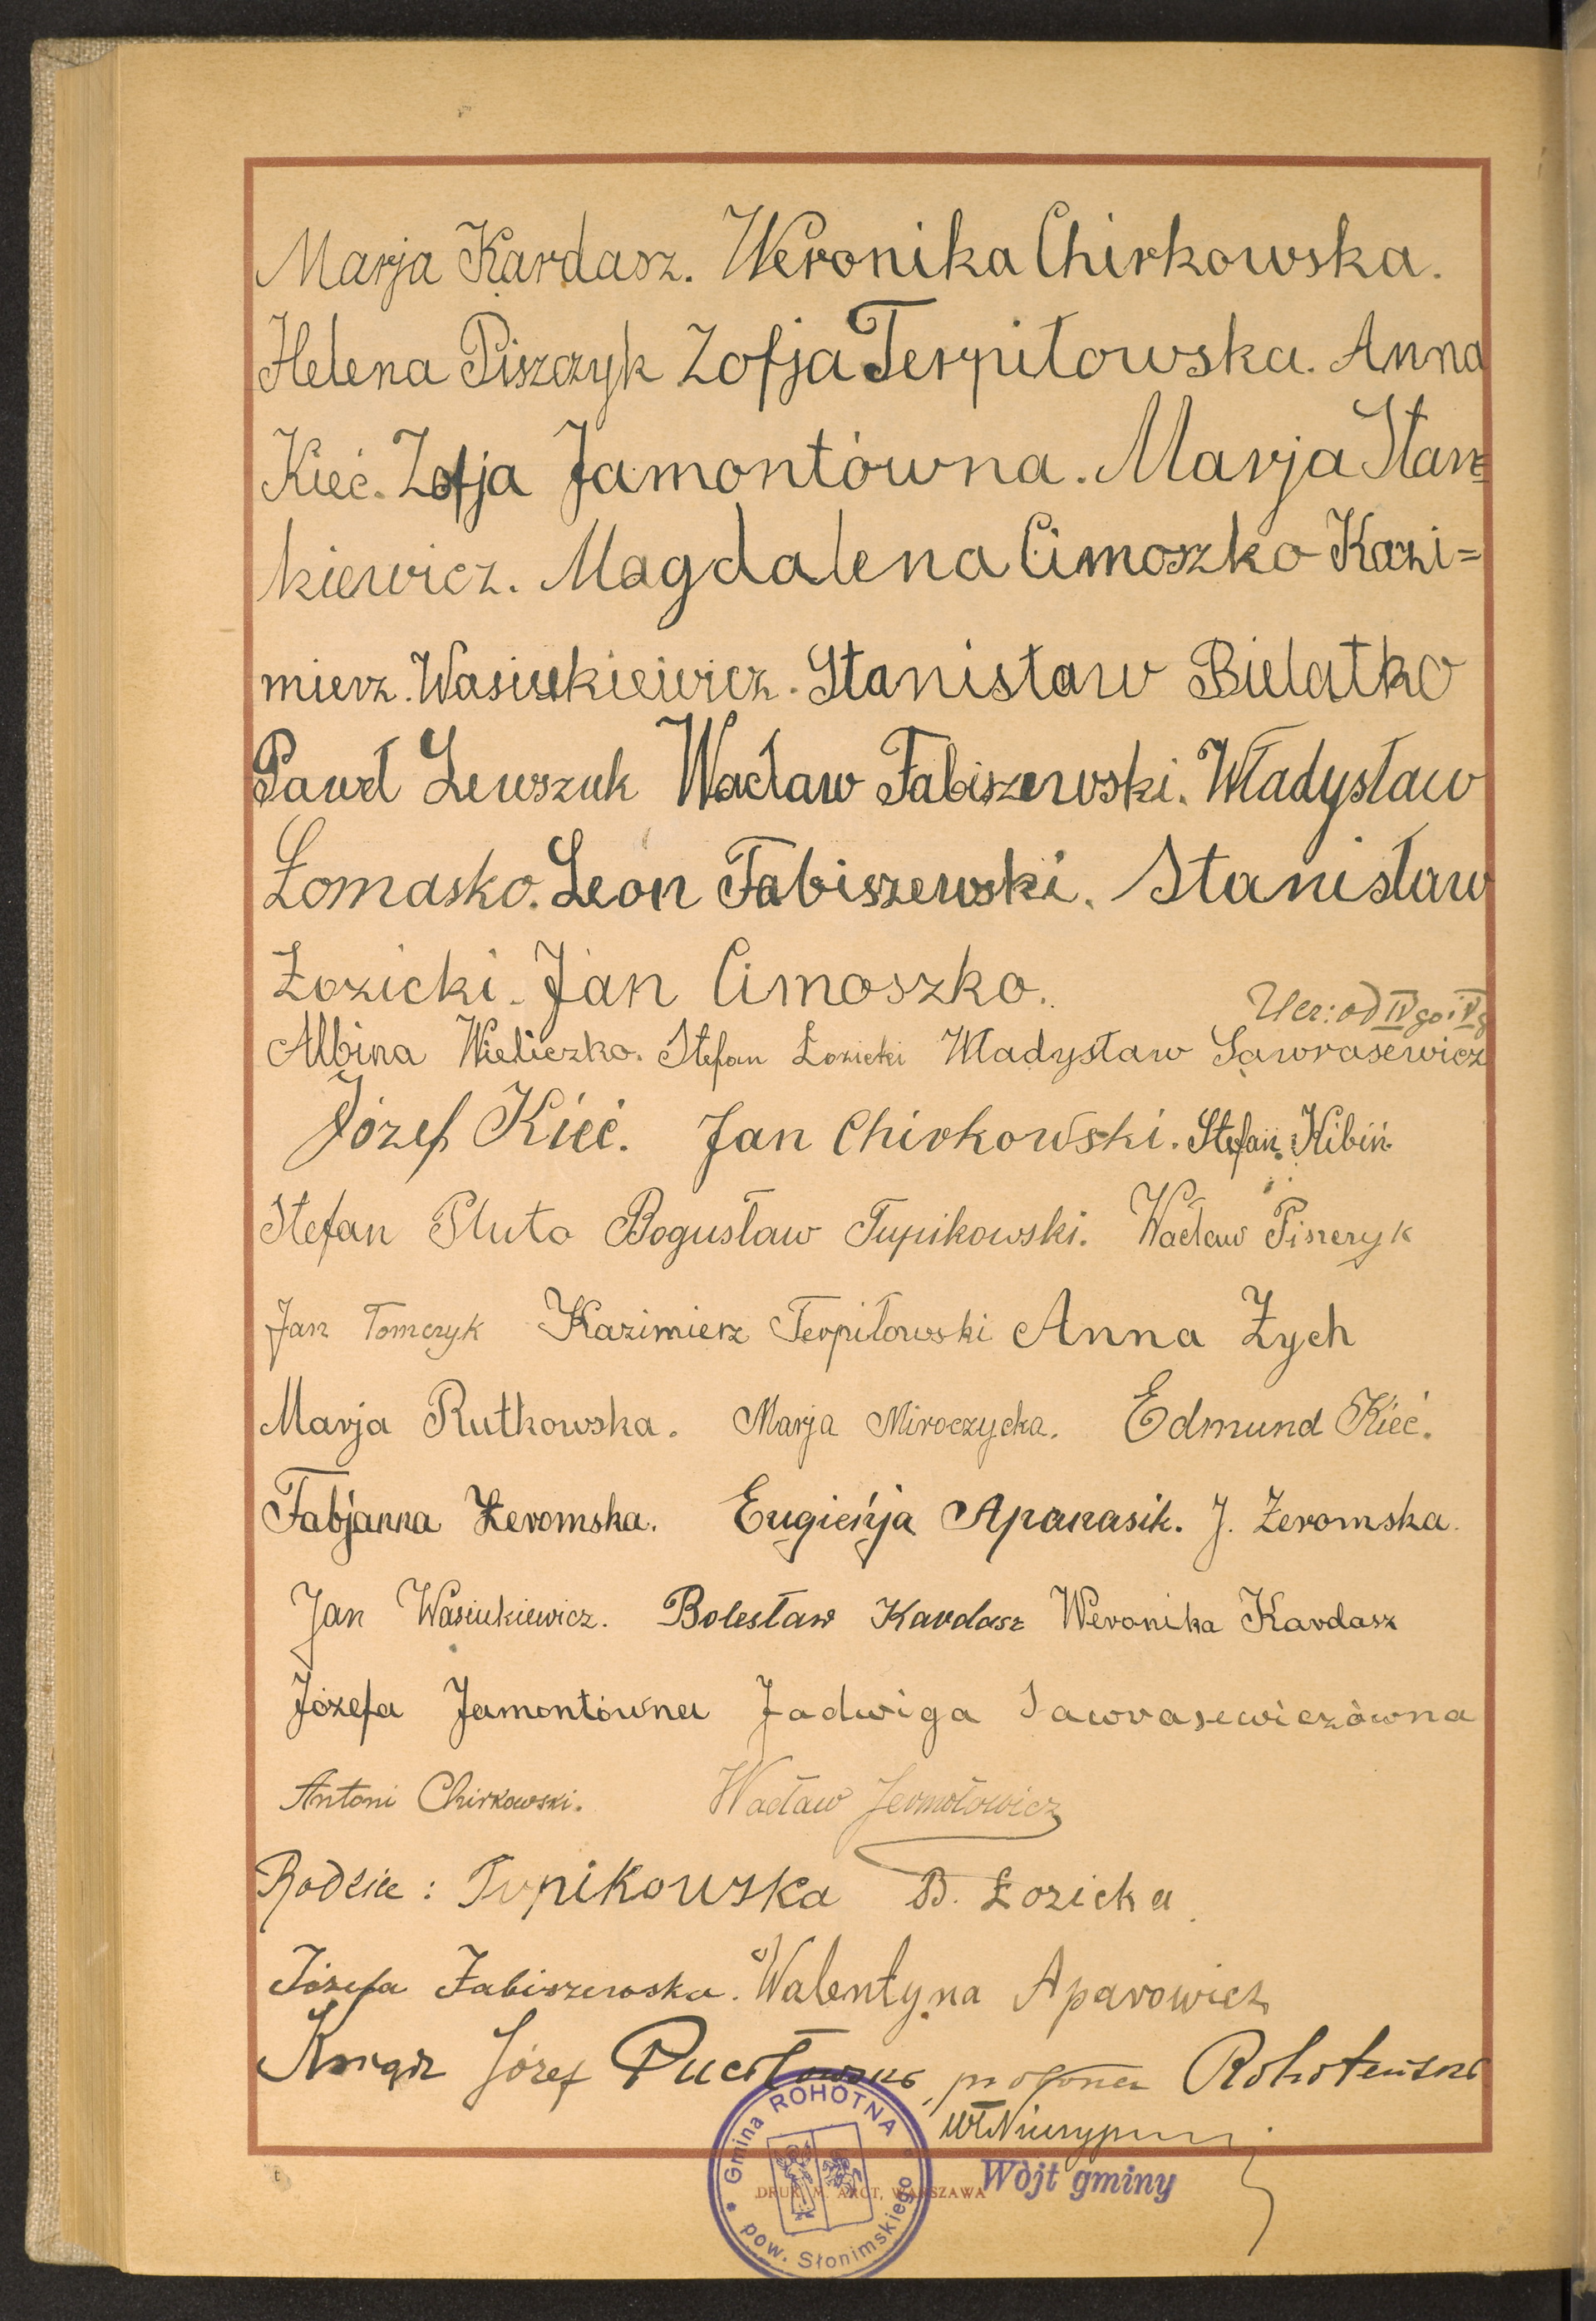 Marja Kardasz. Weronika Chirkowska.
Helena Piszczyk Zofja Terpiłowska. Anna
Kieć. Zofja Jamontówna. Marja Stan=
kiewicz. Magdalena Cimoszko Kazi=
mierz. Wasiukieiwicz. Stanisław Bielatko
Paweł Lewszuk Wacław Fabiszewski. Władysław
Łomasko. Leon Fabiszewski. Stanisław
Łozicki. Jan Cimoszko.
Ucz: od IV go i V g
Albina Wieliczko. Stefan Łozicki Władysław Sawrasewicz
Józef Kieć. Jan Chirkowski. Stefan Kibiń
Stefan Pluta Bogusław Tupikowski. Wacław Piszczyk
Jan Tomczyk Kazimierz Terpiłowski Anna Zych
Marja Rutkowska. Marja Miroczycka. Edmund Kieć.
Fabjanna Żeromska. Eugieńja Apanasik. J. Żeromska.
Jan Wasiukiewicz. Bolesław Kardasz Weronika Kardasz
Józefa Jamontówna Jadwiga Sawrasewiczówna
Antoni Chirkowski. Wacław Jermołowicz
Rodzice: Tupikowska B. Łozicka.
Józefa Fabiszewska. Walentyna Aparowicz
Ksiądz Józef Rohoteński
Wójt gminy
Gmina ROHOTNA * pow. Słonimskiego *
DRUK. M. ARCT, WARSZAWA